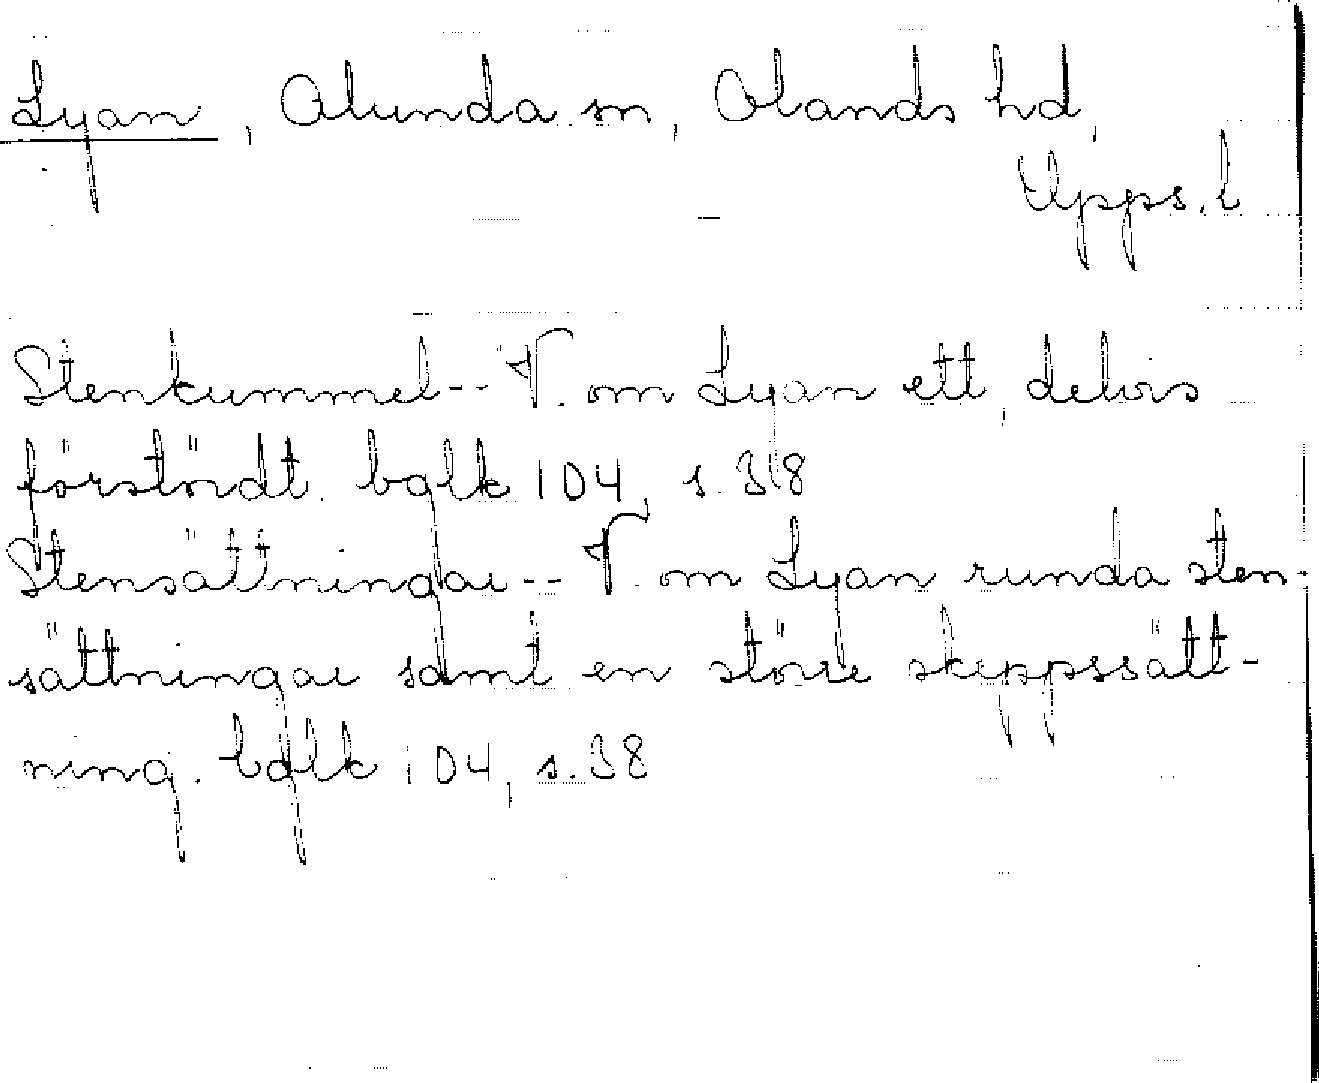 Lyan, Alunda sn, Olands hd,
Upps. l
Stenkummel -- V. om Lyan ett, delvis
förstördt. bqlk 104, s. 38
Stensättningar -- V. om Lyan runda sten-
sättningar samt en större skeppssätt-
ning. bqlk 104, s. 38